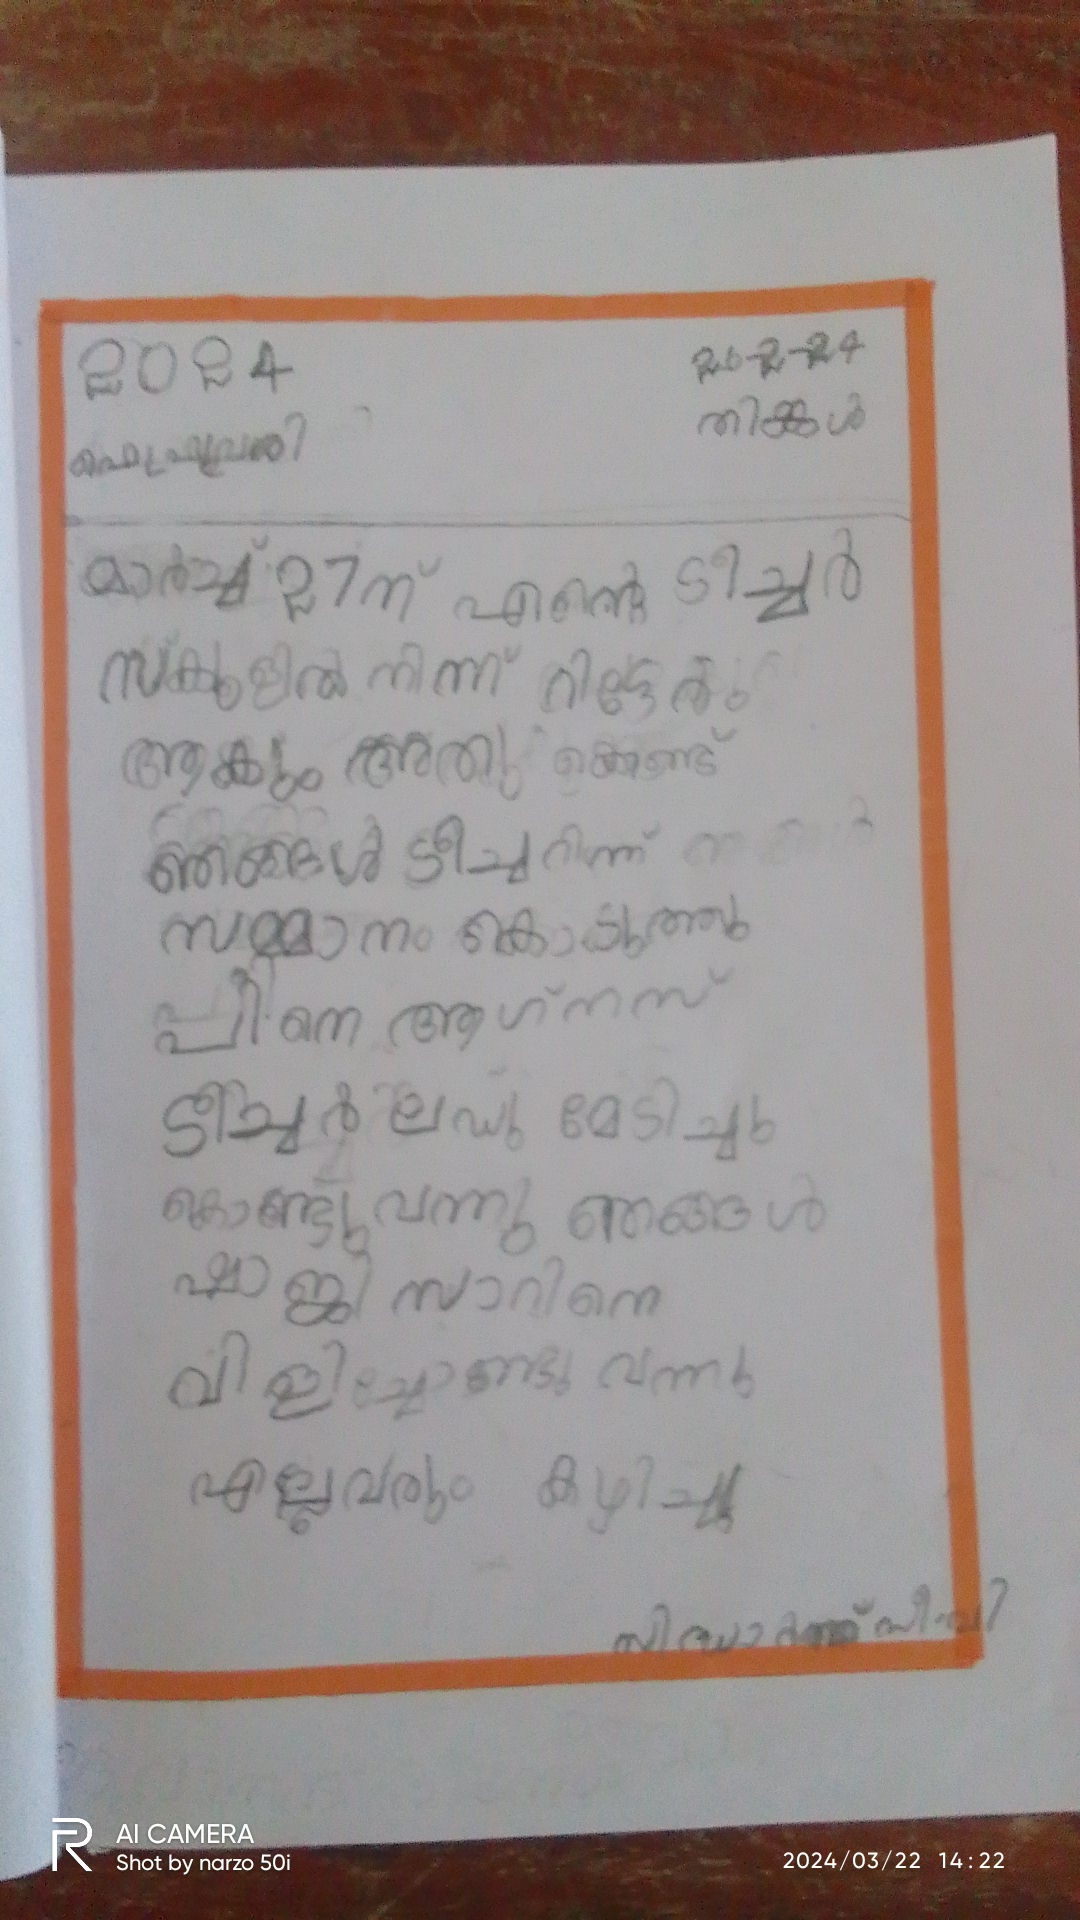 2024
ഫെബ്രുവരി
26-2-24
തിങ്കൾ
മാർച്ച് 27ന് എന്റെ ടീച്ചർ
സ്കൂളിൽ നിന്ന് റിട്ടേർഡ്
ആകും അതു കൊണ്ട്
ഞങ്ങൾ ടീച്ചറിന്ന്
സമ്മാനം കൊടുത്തു
പീന്നെ ആഗ്നസ്
ടീച്ചർ ലഡു മേടിച്ചു
കൊണ്ടുവന്നു ഞങ്ങൾ
ഷാജി സാറിനെ
വിളിച്ചോണ്ടു വന്നു
എല്ലവരും കഴിച്ചു
സിദ്ധാർത്ഥ് സി.വി
AI CAMERA
Shot by narzo 50i
2024/03/22 14:22